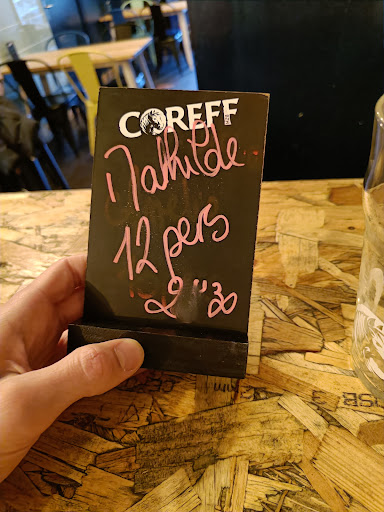 COREFF
Mathilde
12 pers